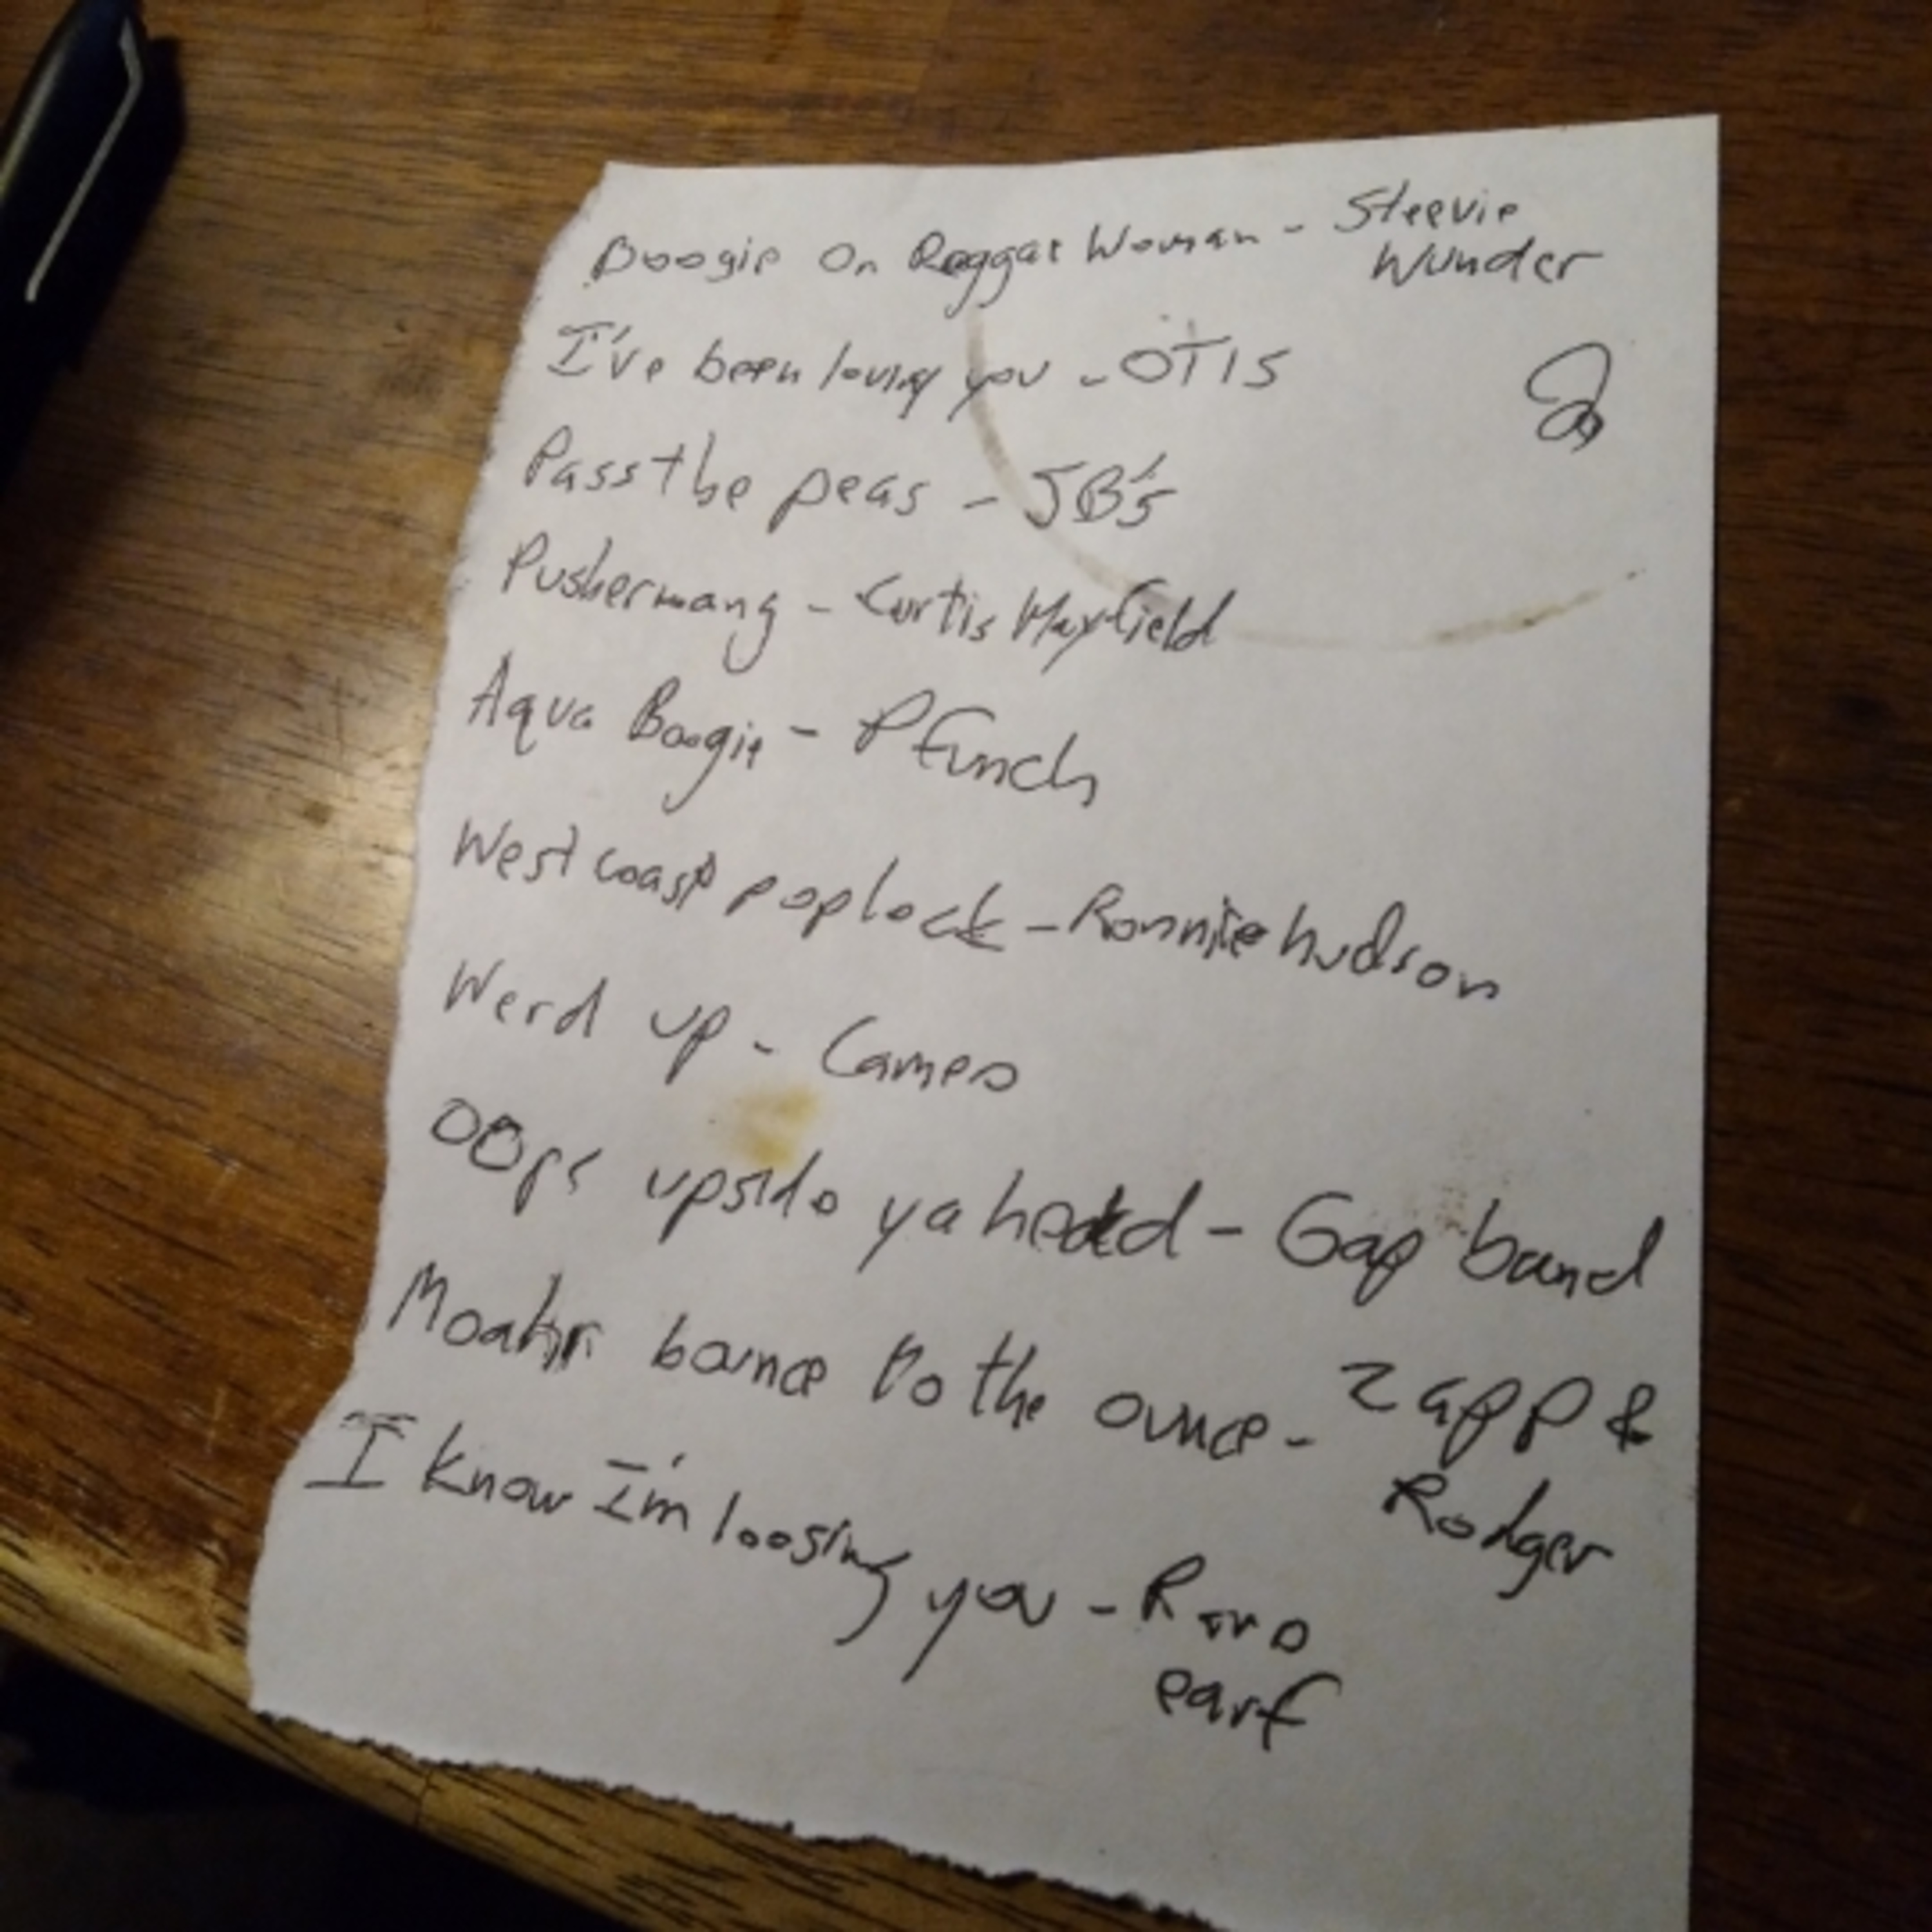 Boogie On Reggae Woman - Steevie
Wunder
I've been loving you - OTIS
Pass the peas - JB's
Pushermang - Curtis Mayfield
Aqua Boogie - P Funch
West coast poplock - Ronnie hudson
Werd up - Cameo
OOps upside ya head - Gap band
Moahr bounce to the ounce - Zapp &
Rodger
I know I'm loosing you - Raro
earf